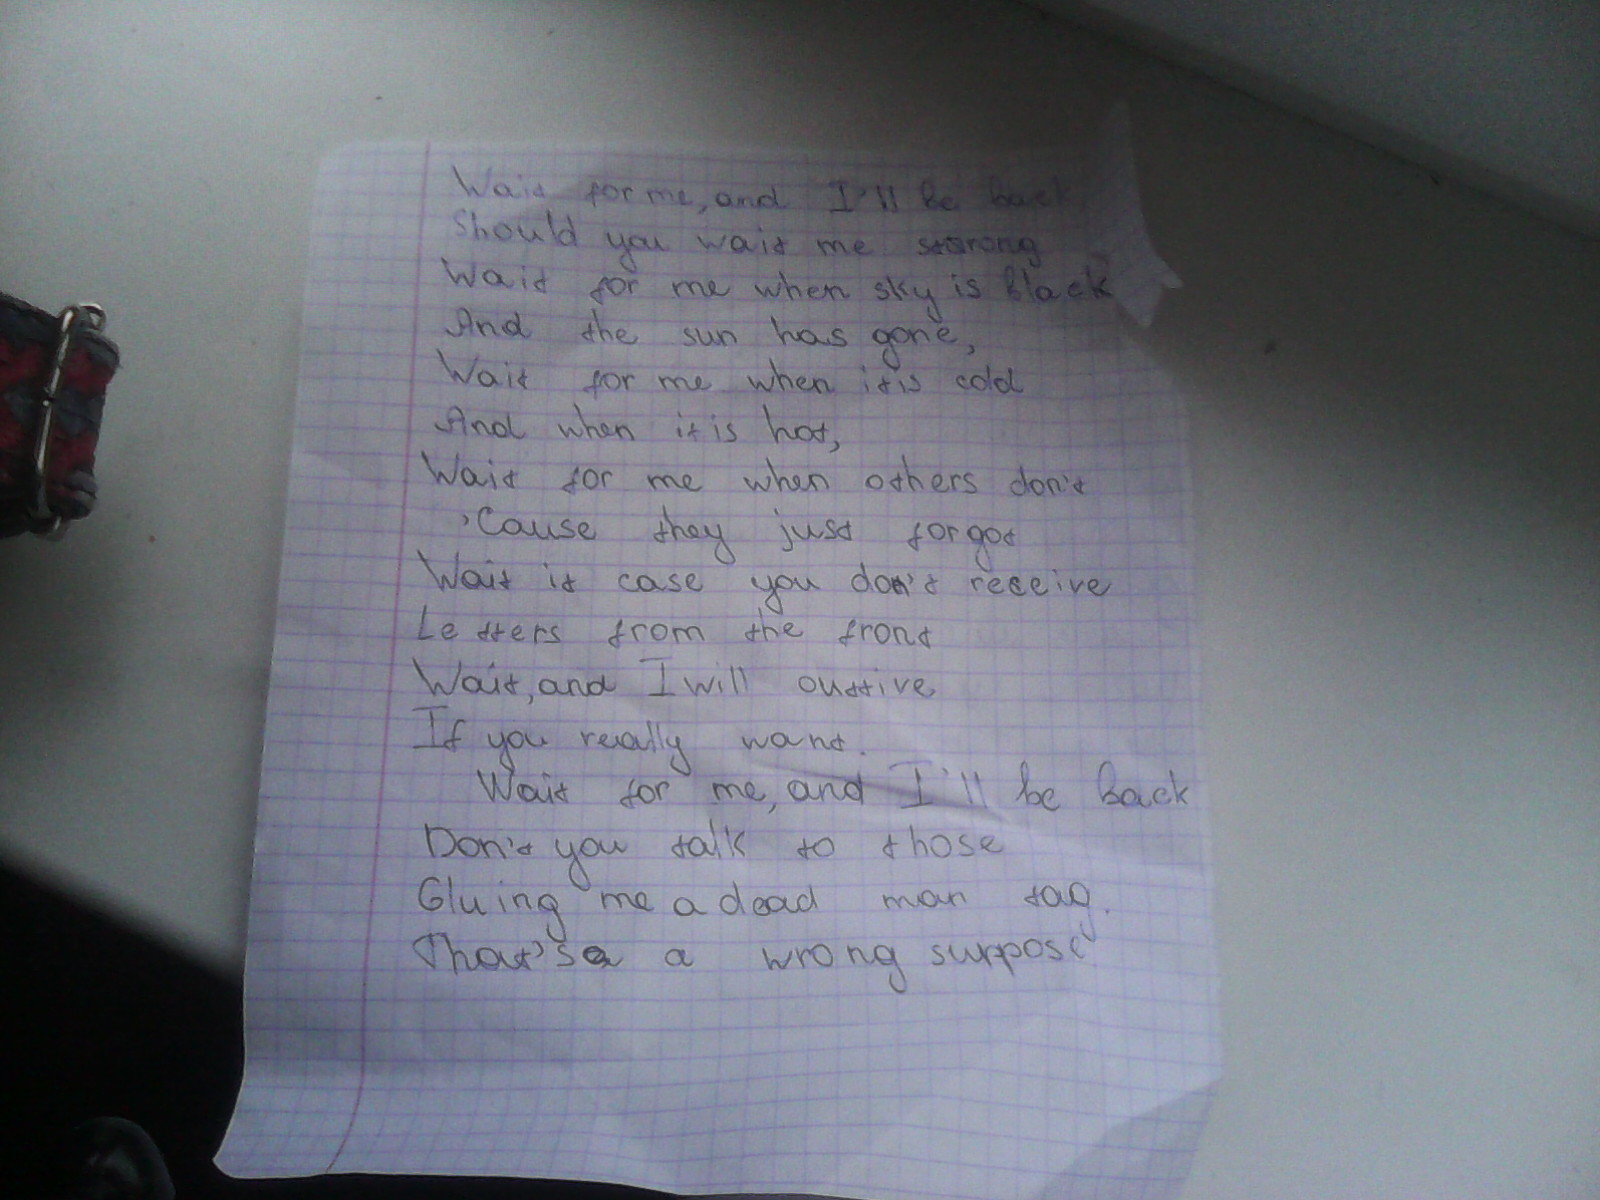 Wait for me, and I'll be back
Should you wait me strong
Wait for me when sky is black
And the sun has gone,
Wait for me when it is cold
And when it is hot,
Wait for me when others don't
'Cause they just forgot
Wait it case you don't receive
Letters from the front
Wait, and I will outtive
If you really want.
Wait for me, and I'll be back
Don't you talk to those
Gluing me a dead man tag.
That's a wrong surpose